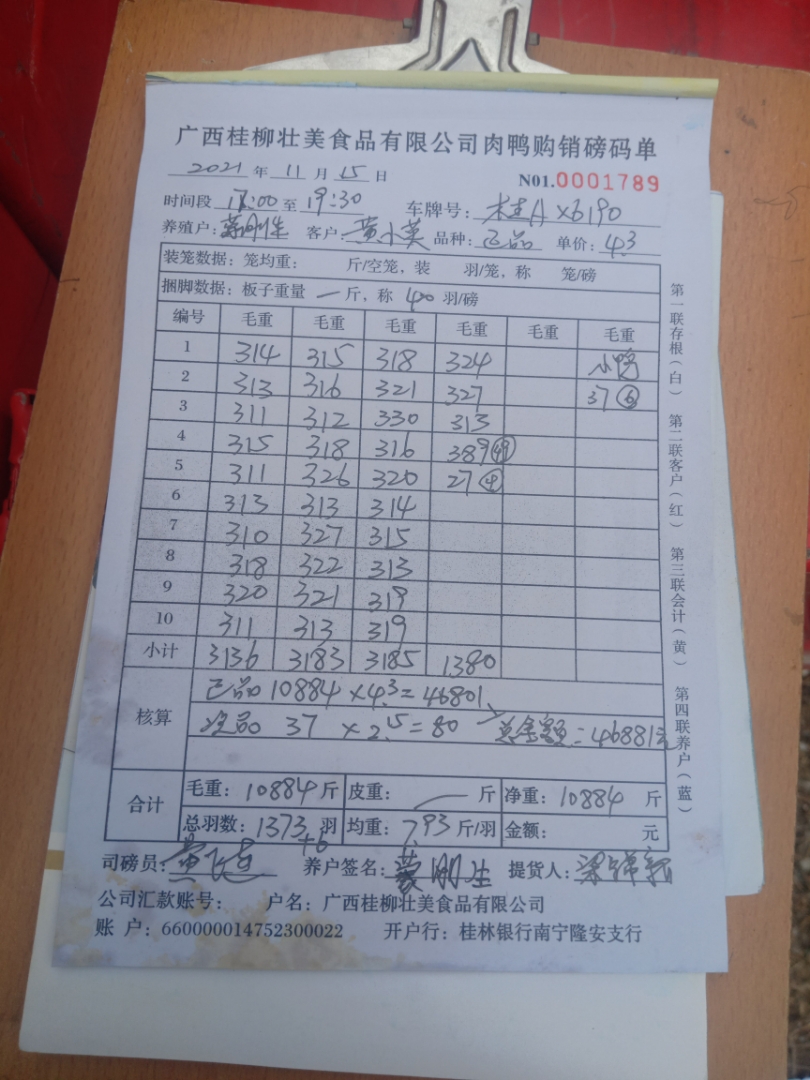 广西桂柳壮美食品有限公司肉鸭购销磅码单
2021 年 11 月 15 日 N01.0001789
时间段 17:00 至 19:30 车牌号: 桂A X6190
养殖户: 蒙刚生 客户: 黄小英 品种: 正品 单价: 4.3
装笼数据: 笼均重: 斤/空笼, 装 羽/笼, 称 笼/磅
捆脚数据: 板子重量 — 斤, 称 40 羽/磅
编号 毛重 毛重 毛重 毛重 毛重 毛重
1 314 315 318 324 小鸭
2 313 316 321 327 37 ⑥
3 311 312 330 313
4 315 318 316 389 ㊾
5 311 326 320 27 ④
6 313 313 314
7 310 327 315
8 318 322 313
9 320 321 319
10 311 313 319
小计 3136 3183 3185 1380
核算
正品 10884 × 4.3 = 46801
次品 37 × 2.15 = 80 总金额 = 46881元
合计
毛重: 10884 斤 皮重: — 斤 净重: 10884 斤
总羽数: 1373 羽 均重: 7.93 斤/羽 金额: 元
+6
司磅员: 养户签名: 蒙刚生 提货人:
公司汇款账号: 户名: 广西桂柳壮美食品有限公司
账 户: 660000014752300022 开户行: 桂林银行南宁隆安支行
第一联存根(白) 第二联客户(红) 第三联会计(黄) 第四联养户(蓝)